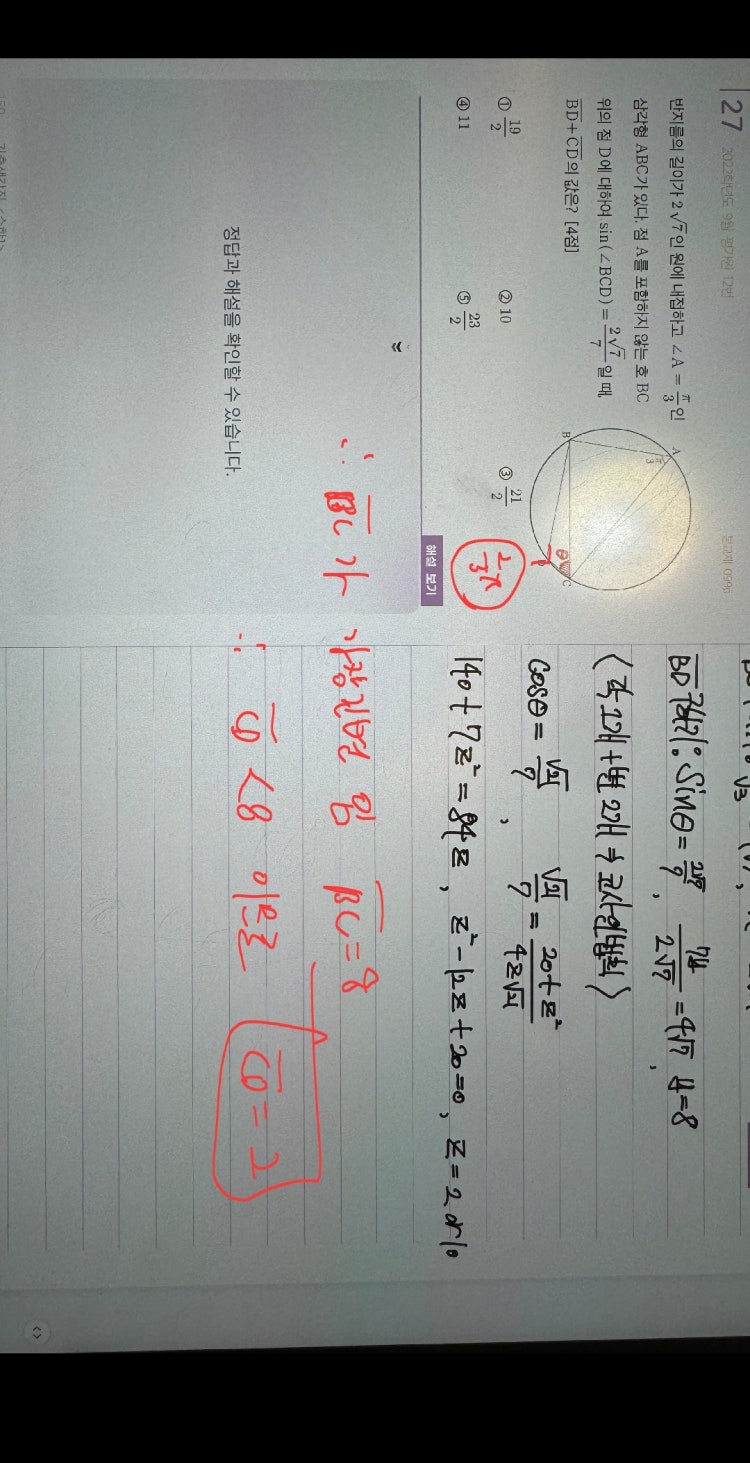 27 2022학년도 9월 평가원 12번
반지름의 길이가 2√7인 원에 내접하고 ∠A = π/3인
삼각형 ABC가 있다. 점 A를 포함하지 않는 호 BC
위의 점 D에 대하여 sin(∠BCD) = 2√7/7일 때,
BD+CD의 값은? [4점]
① 19/2 ② 10 ③ 21/2
④ 11 ⑤ 23/2
A
π/3
B
C
D
θ
2/3π
해설 보기
정답과 해설을 확인할 수 있습니다.
BD 구하기: sinθ = 2√7/7, y/(2√7/7) = 4√7, y=8
(각 1개 + 변 2개 → 코사인법칙)
cosθ = √21/7, √21/7 = (20+z²)/(4z√21)
140+7z² = 84z, z²-12z+20=0, z=2 or 10
∴ BC가 가장 긴 변임 BC=8
∵ CD<8 이므로 CD=2